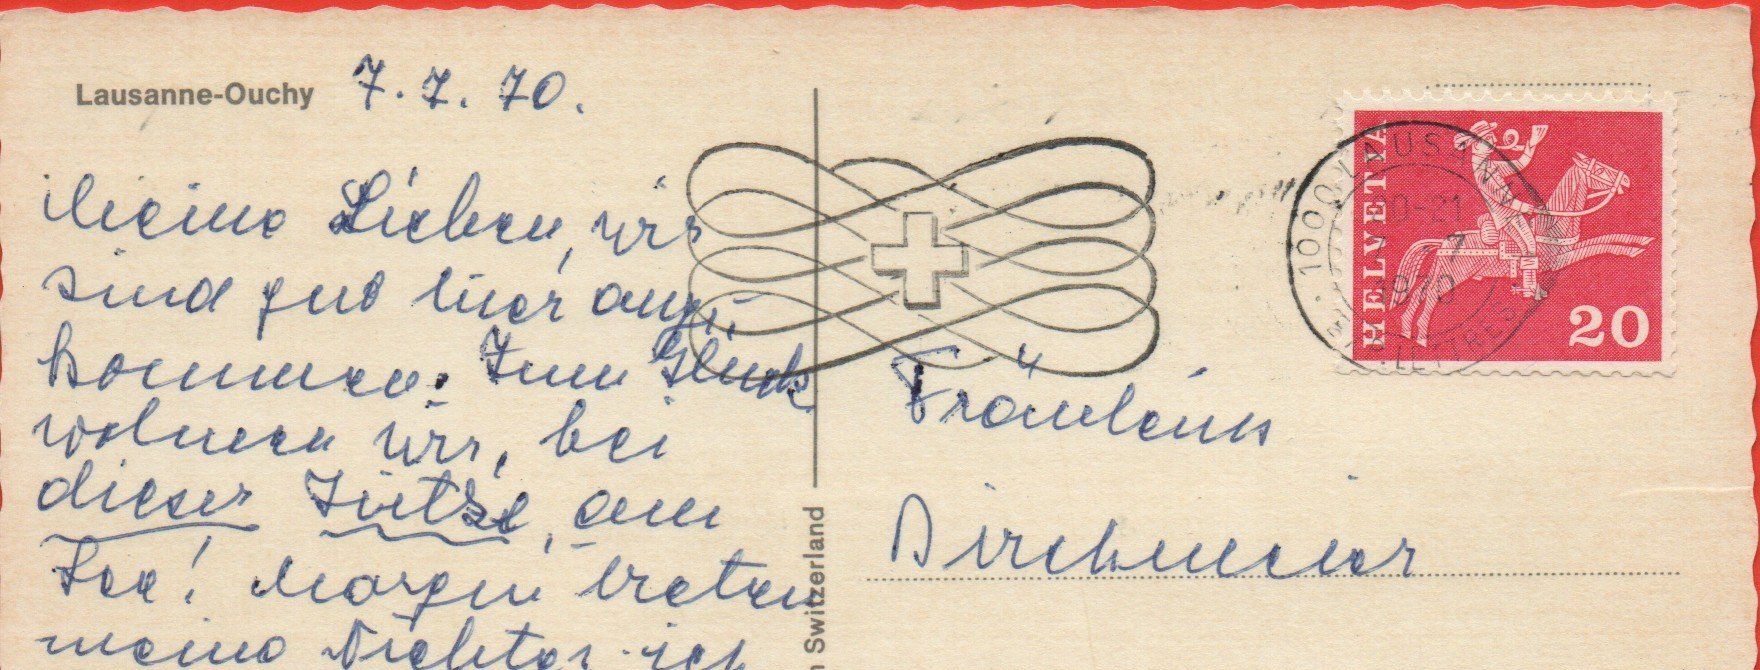 Lausanne-Ouchy 7.7.70.
Meine Lieben, wir
sind gut hier ange-
kommen. Zum Glück
wohnen wir, bei
dieser Hitze, am
See! Morgen treten
meine Nichte ich
Fräulein
Dirchmeier
HELVETIA
20
1000 LAUSANNE
20-21
7
1970
LETTRES
Switzerland